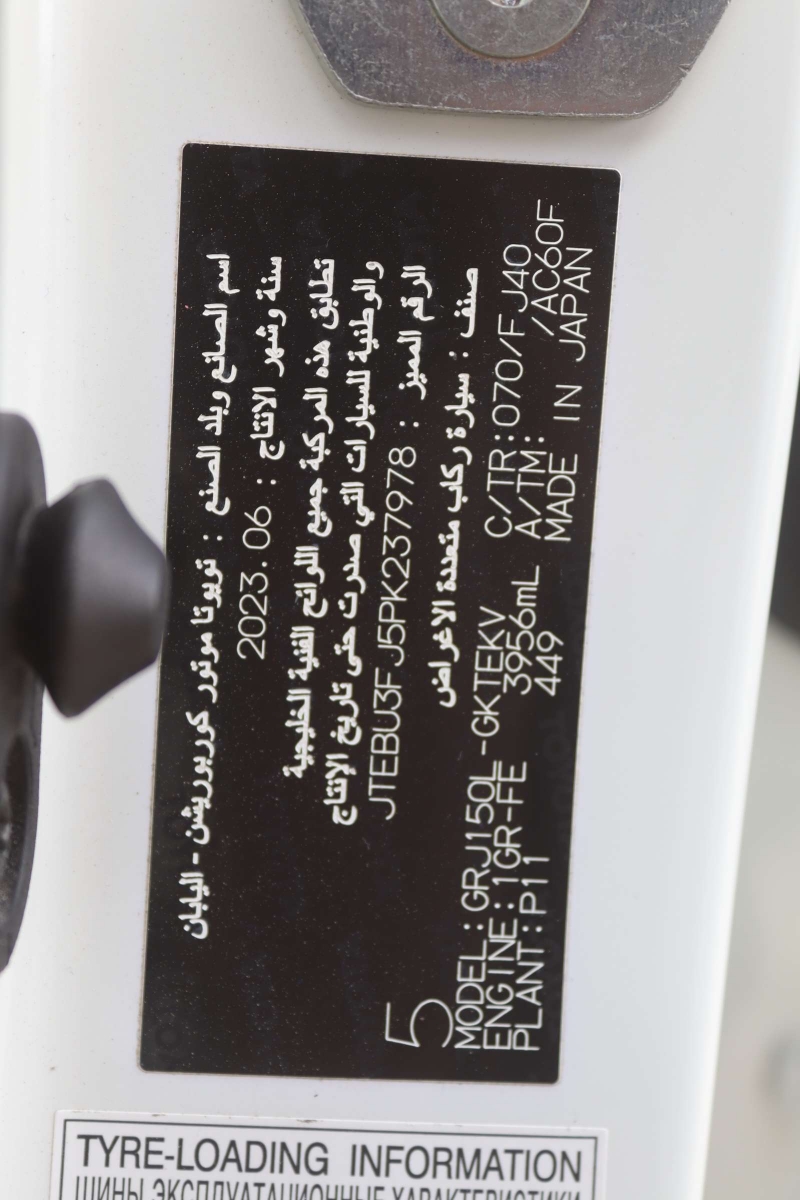 اسم الصانع وبلد الصنع : تويوتا موتور كوربوريشن - اليابان
سنة وشهر الانتاج : 2023.06
تطابق هذه المركبة جميع اللوائح الفنية الخليجية
والوطنية للسيارات التي صدرت حتى تاريخ الإنتاج
الرقم المميز : JTEBU3FJ5PK237978
صنف : سيارة ركاب متعددة الاغراض
5
MODEL:GRJ150L-GKTEKV C/TR:070/FJ40
ENGINE:1GR-FE 3956mL A/TM: /AC60F
PLANT:P11 449 MADE IN JAPAN
TYRE-LOADING INFORMATION
ШИНЫ ЭКСПЛУАТАЦИОННЫЕ ХАРАКТЕРИСТИКИ